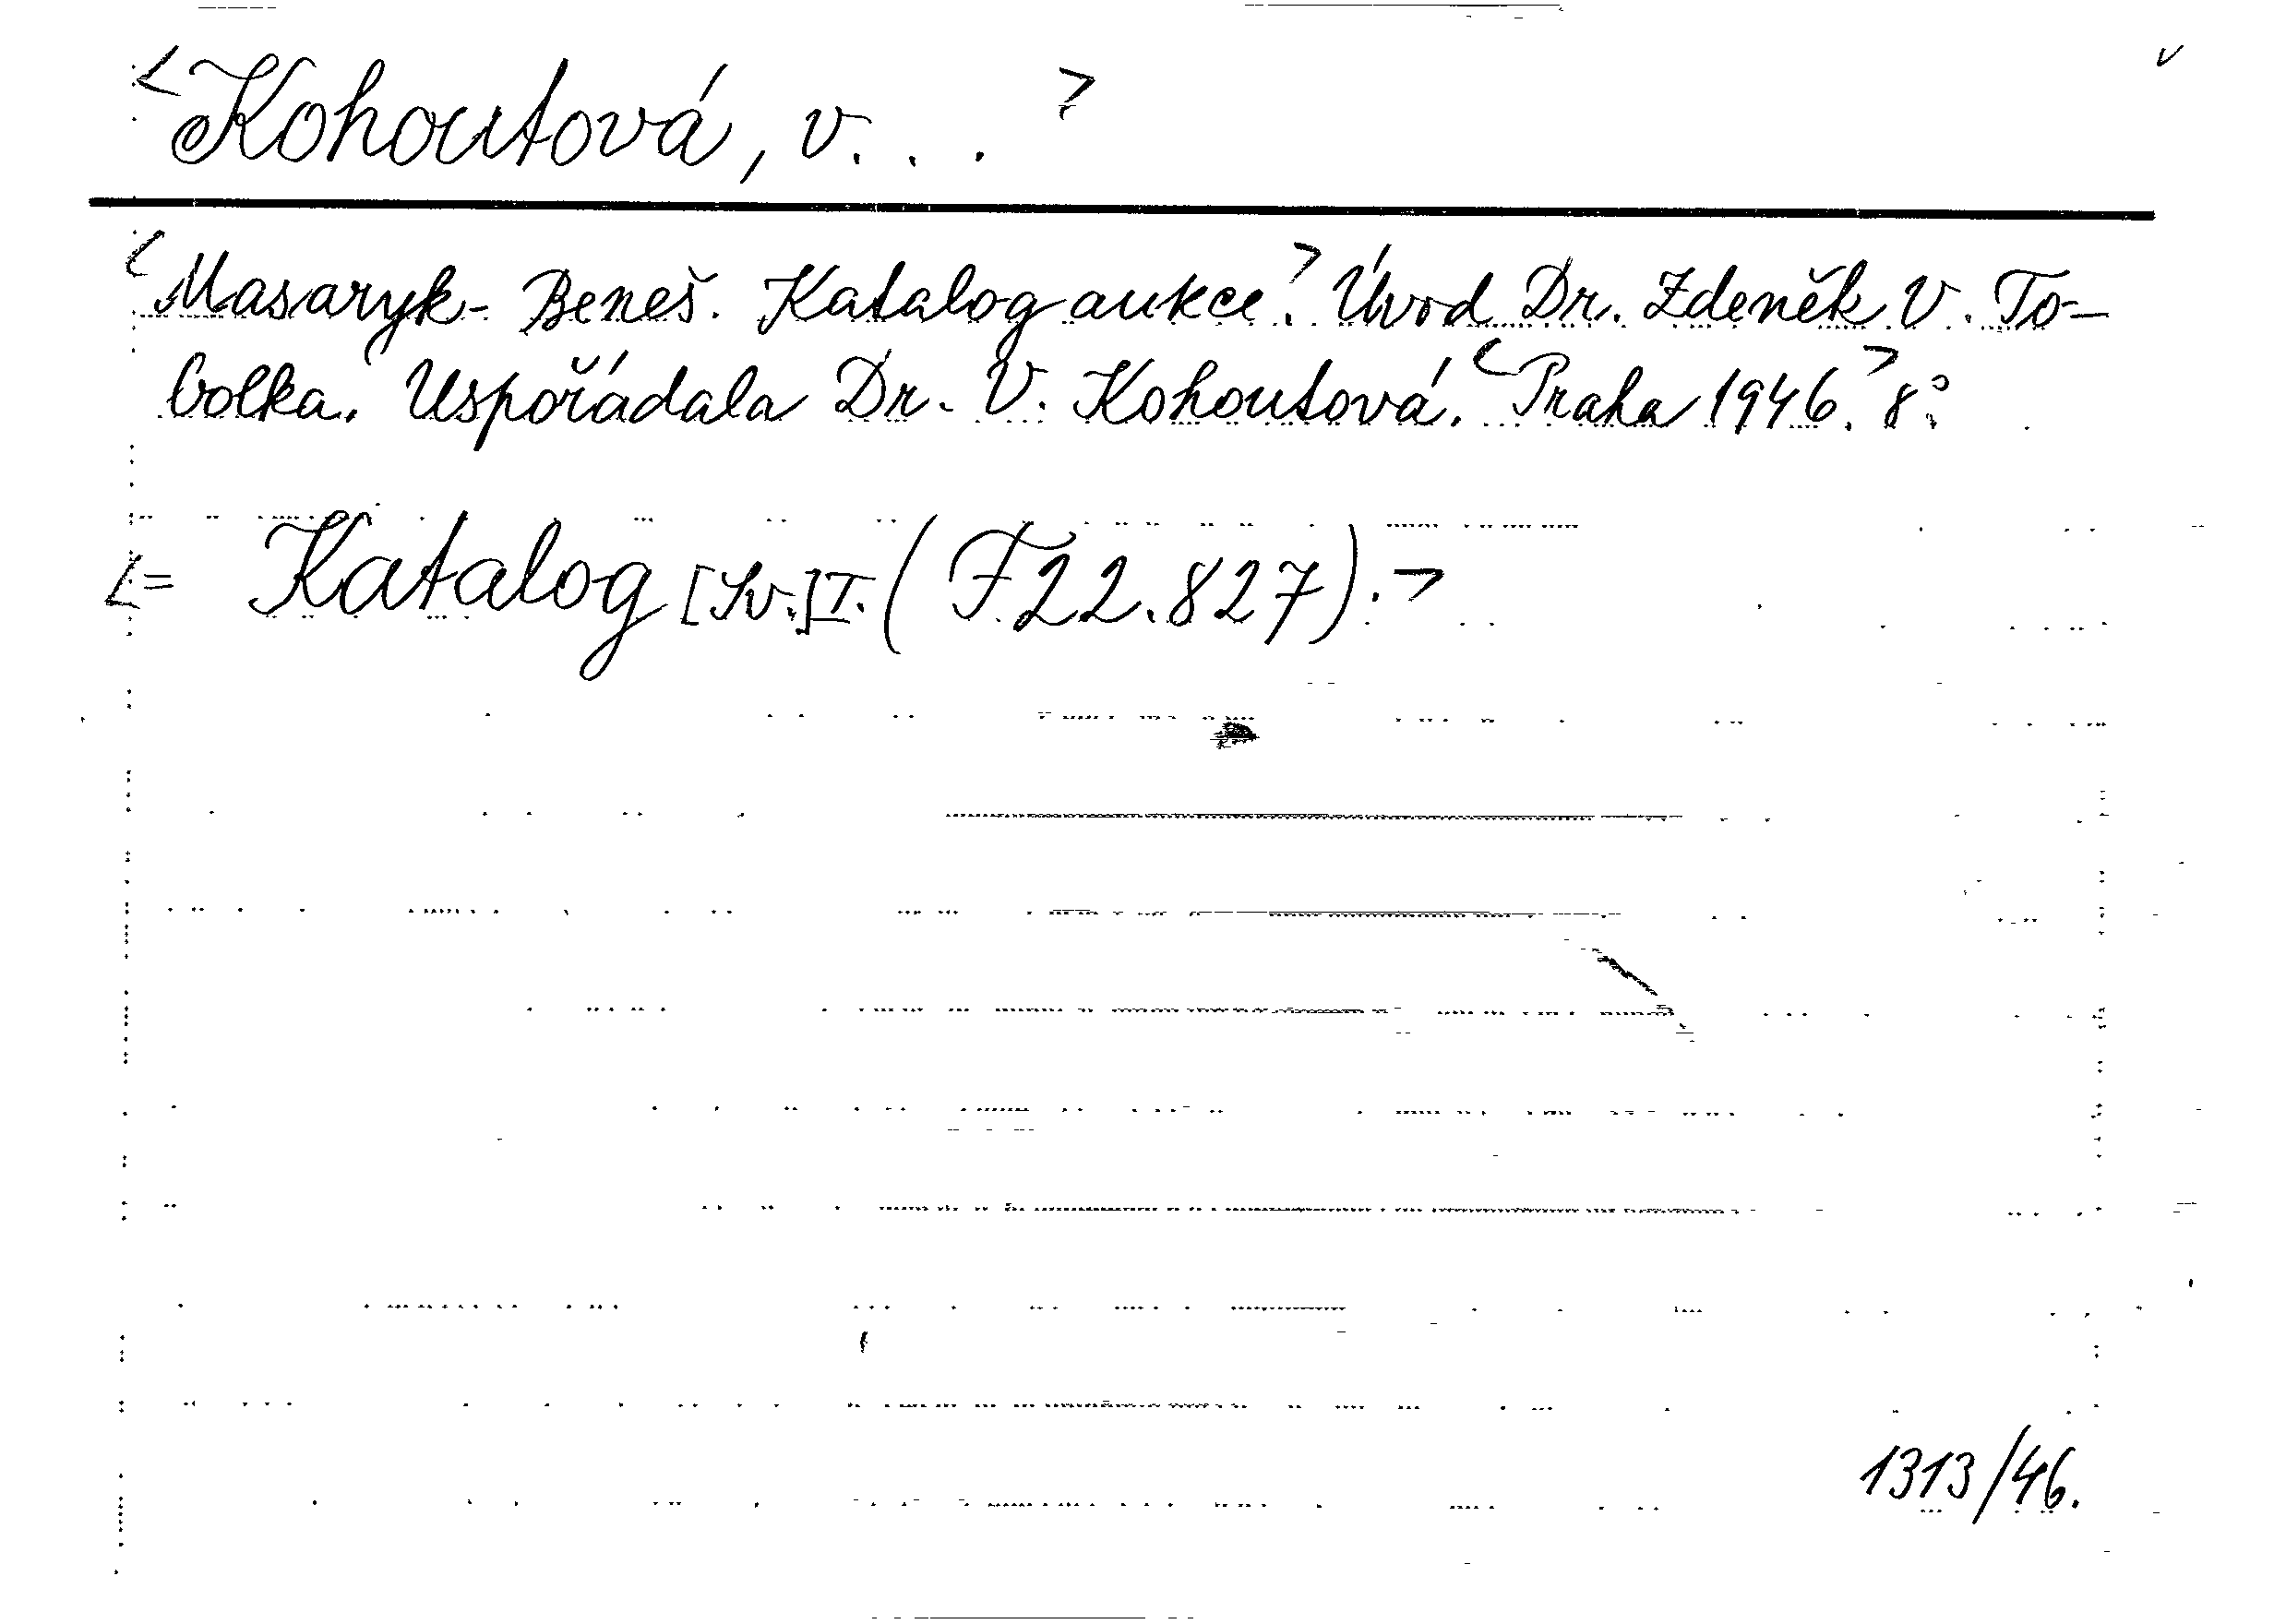 <Kohoutová, V. . . >
<Masaryk-Beneš. Katalog aukce.> Úvod Dr. Zdeněk V. To-
bolka. Uspořádala Dr. V. Kohoutová. <Praha 1946.> 8°.
<= Katalog [Sv.] I. (F 22.827). >
1313/46.